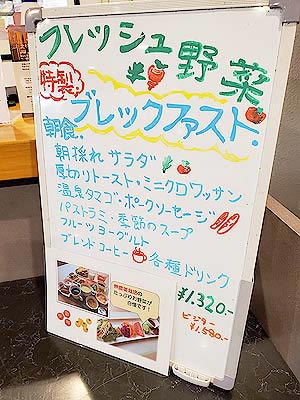 フレッシュ野菜
特製!
ブレックファスト.
朝食.
朝採れサラダ
厚切リトースト・ミニクロワッサン
温泉タマゴ・ポークソーセージ
パストラミ・季節のスープ
フルーツヨーグルト
ブレンドコーヒー 各種ドリンク
¥1,320.-
ビジター
¥1,580.-
無農薬栽培の
たっぷりお野菜が
自慢です!